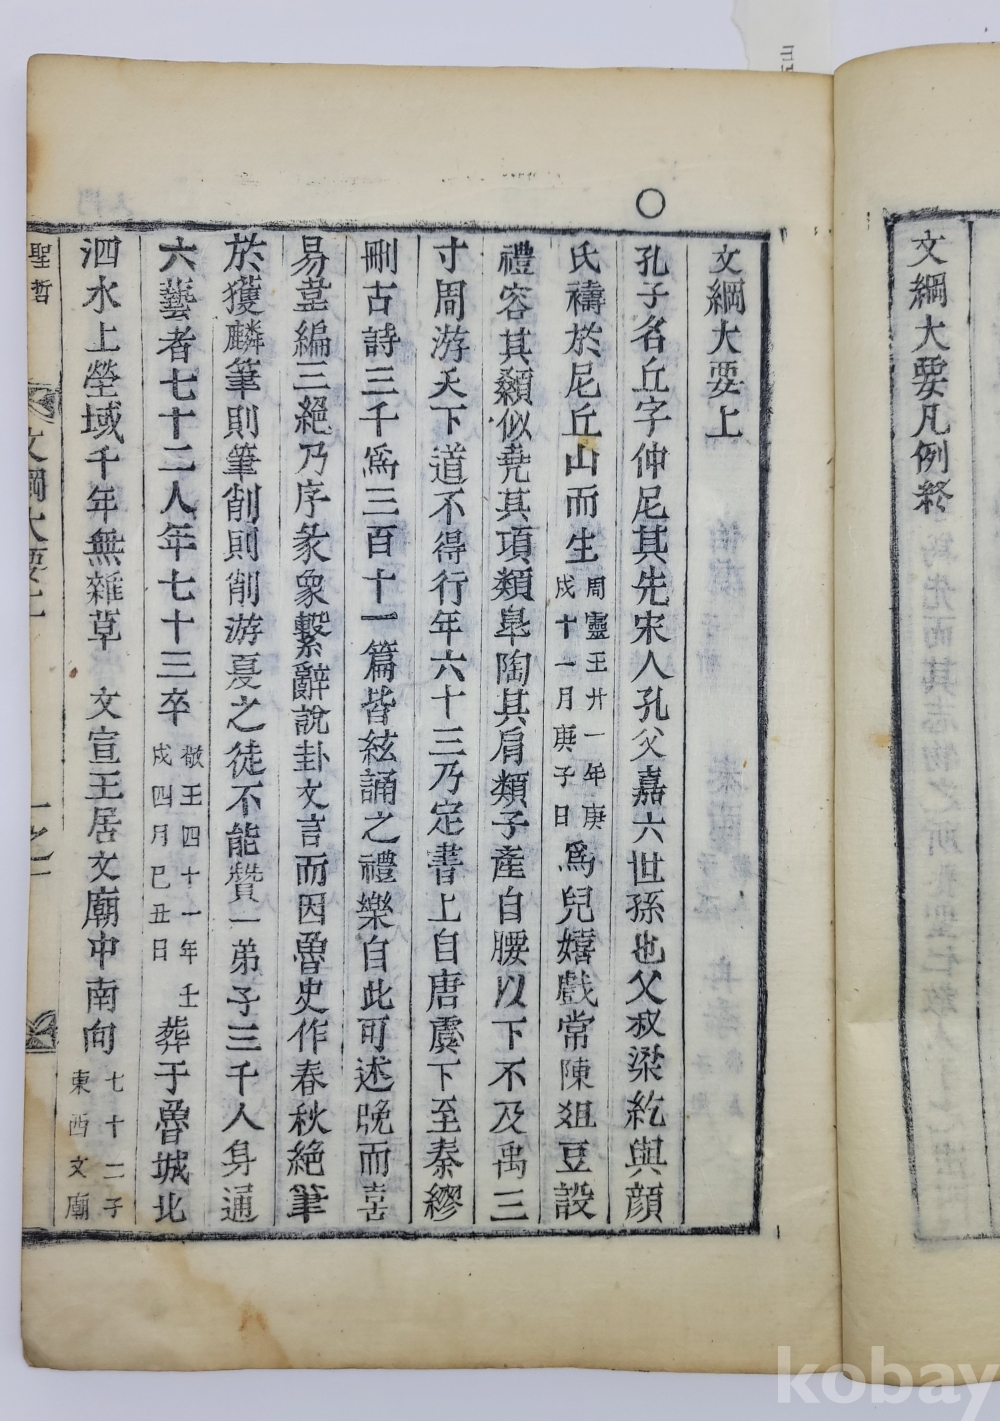 文綱大要凡例終
○
文綱大要上
孔子名丘字仲尼其先宋人孔父嘉六世孫也父叔梁紇與顔
氏禱於尼丘山而生周靈王廿一年庚戌十一月庚子日爲兒嬉戲常陳俎豆設
禮容其顙似堯其項類臯陶其肩類子產自腰以下不及禹三
寸周游天下道不得行年六十三乃定書上自唐虞下至秦繆
刪古詩三千爲三百十一篇皆絃誦之禮樂自此可述晩而喜
易葦編三絕乃序彖象繫辭說卦文言而因魯史作春秋絶筆
於獲麟筆則筆削則削游夏之徒不能贊一弟子三千人身通
六藝者七十二人年七十三卒敬王四十一年壬戌四月巳丑日葬于魯城北
泗水上塋域千年無雜草 文宣王居文廟中南向七十二子東西文廟
聖哲
文綱大要上
一之一
kobay